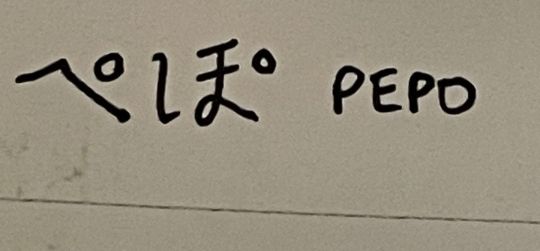 ぺぽ PEPO